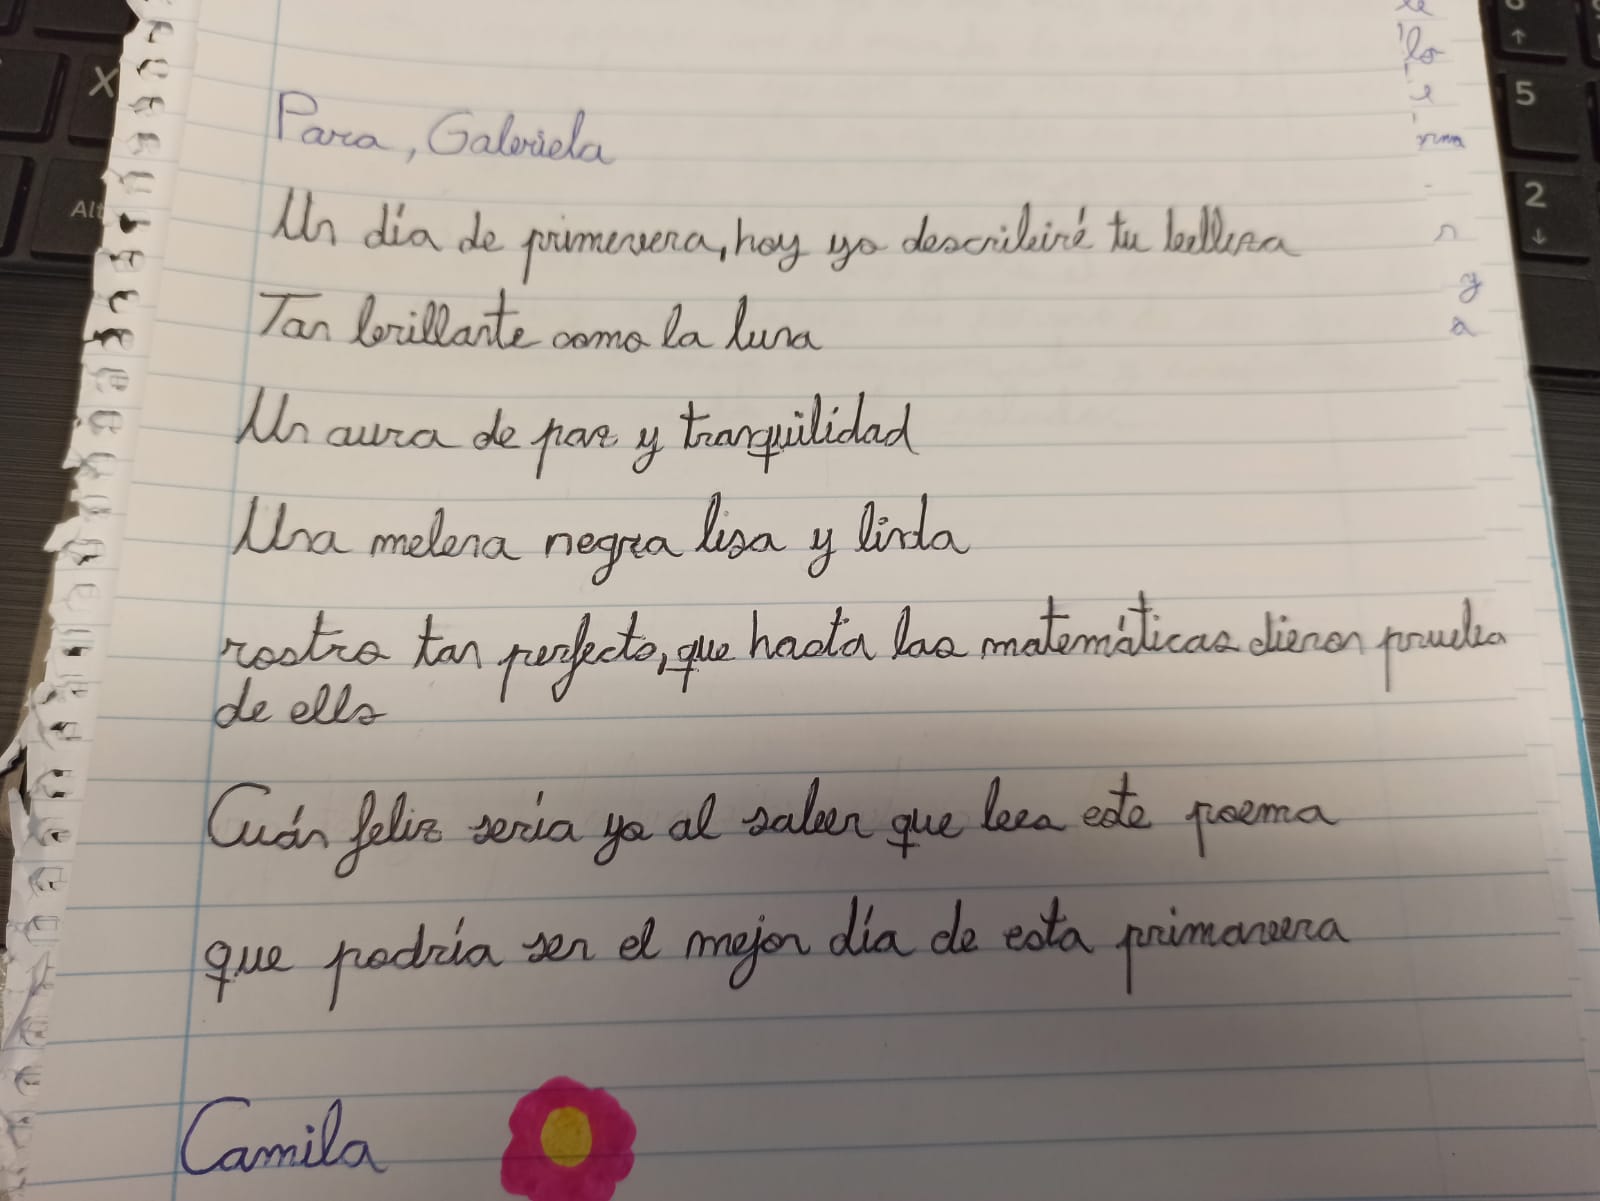 Para, Gabriela
Un día de primavera, hoy yo describiré tu belleza
Tan brillante como la luna
Un aura de paz y tranquilidad
Una melena negra lisa y linda
rostro tan perfecto, que hasta las matemáticas dieron prueba
de ello
Cuán feliz sería yo al saber que lees este poema
que podría ser el mejor día de esta primavera
Camila
X
Alt
5
2